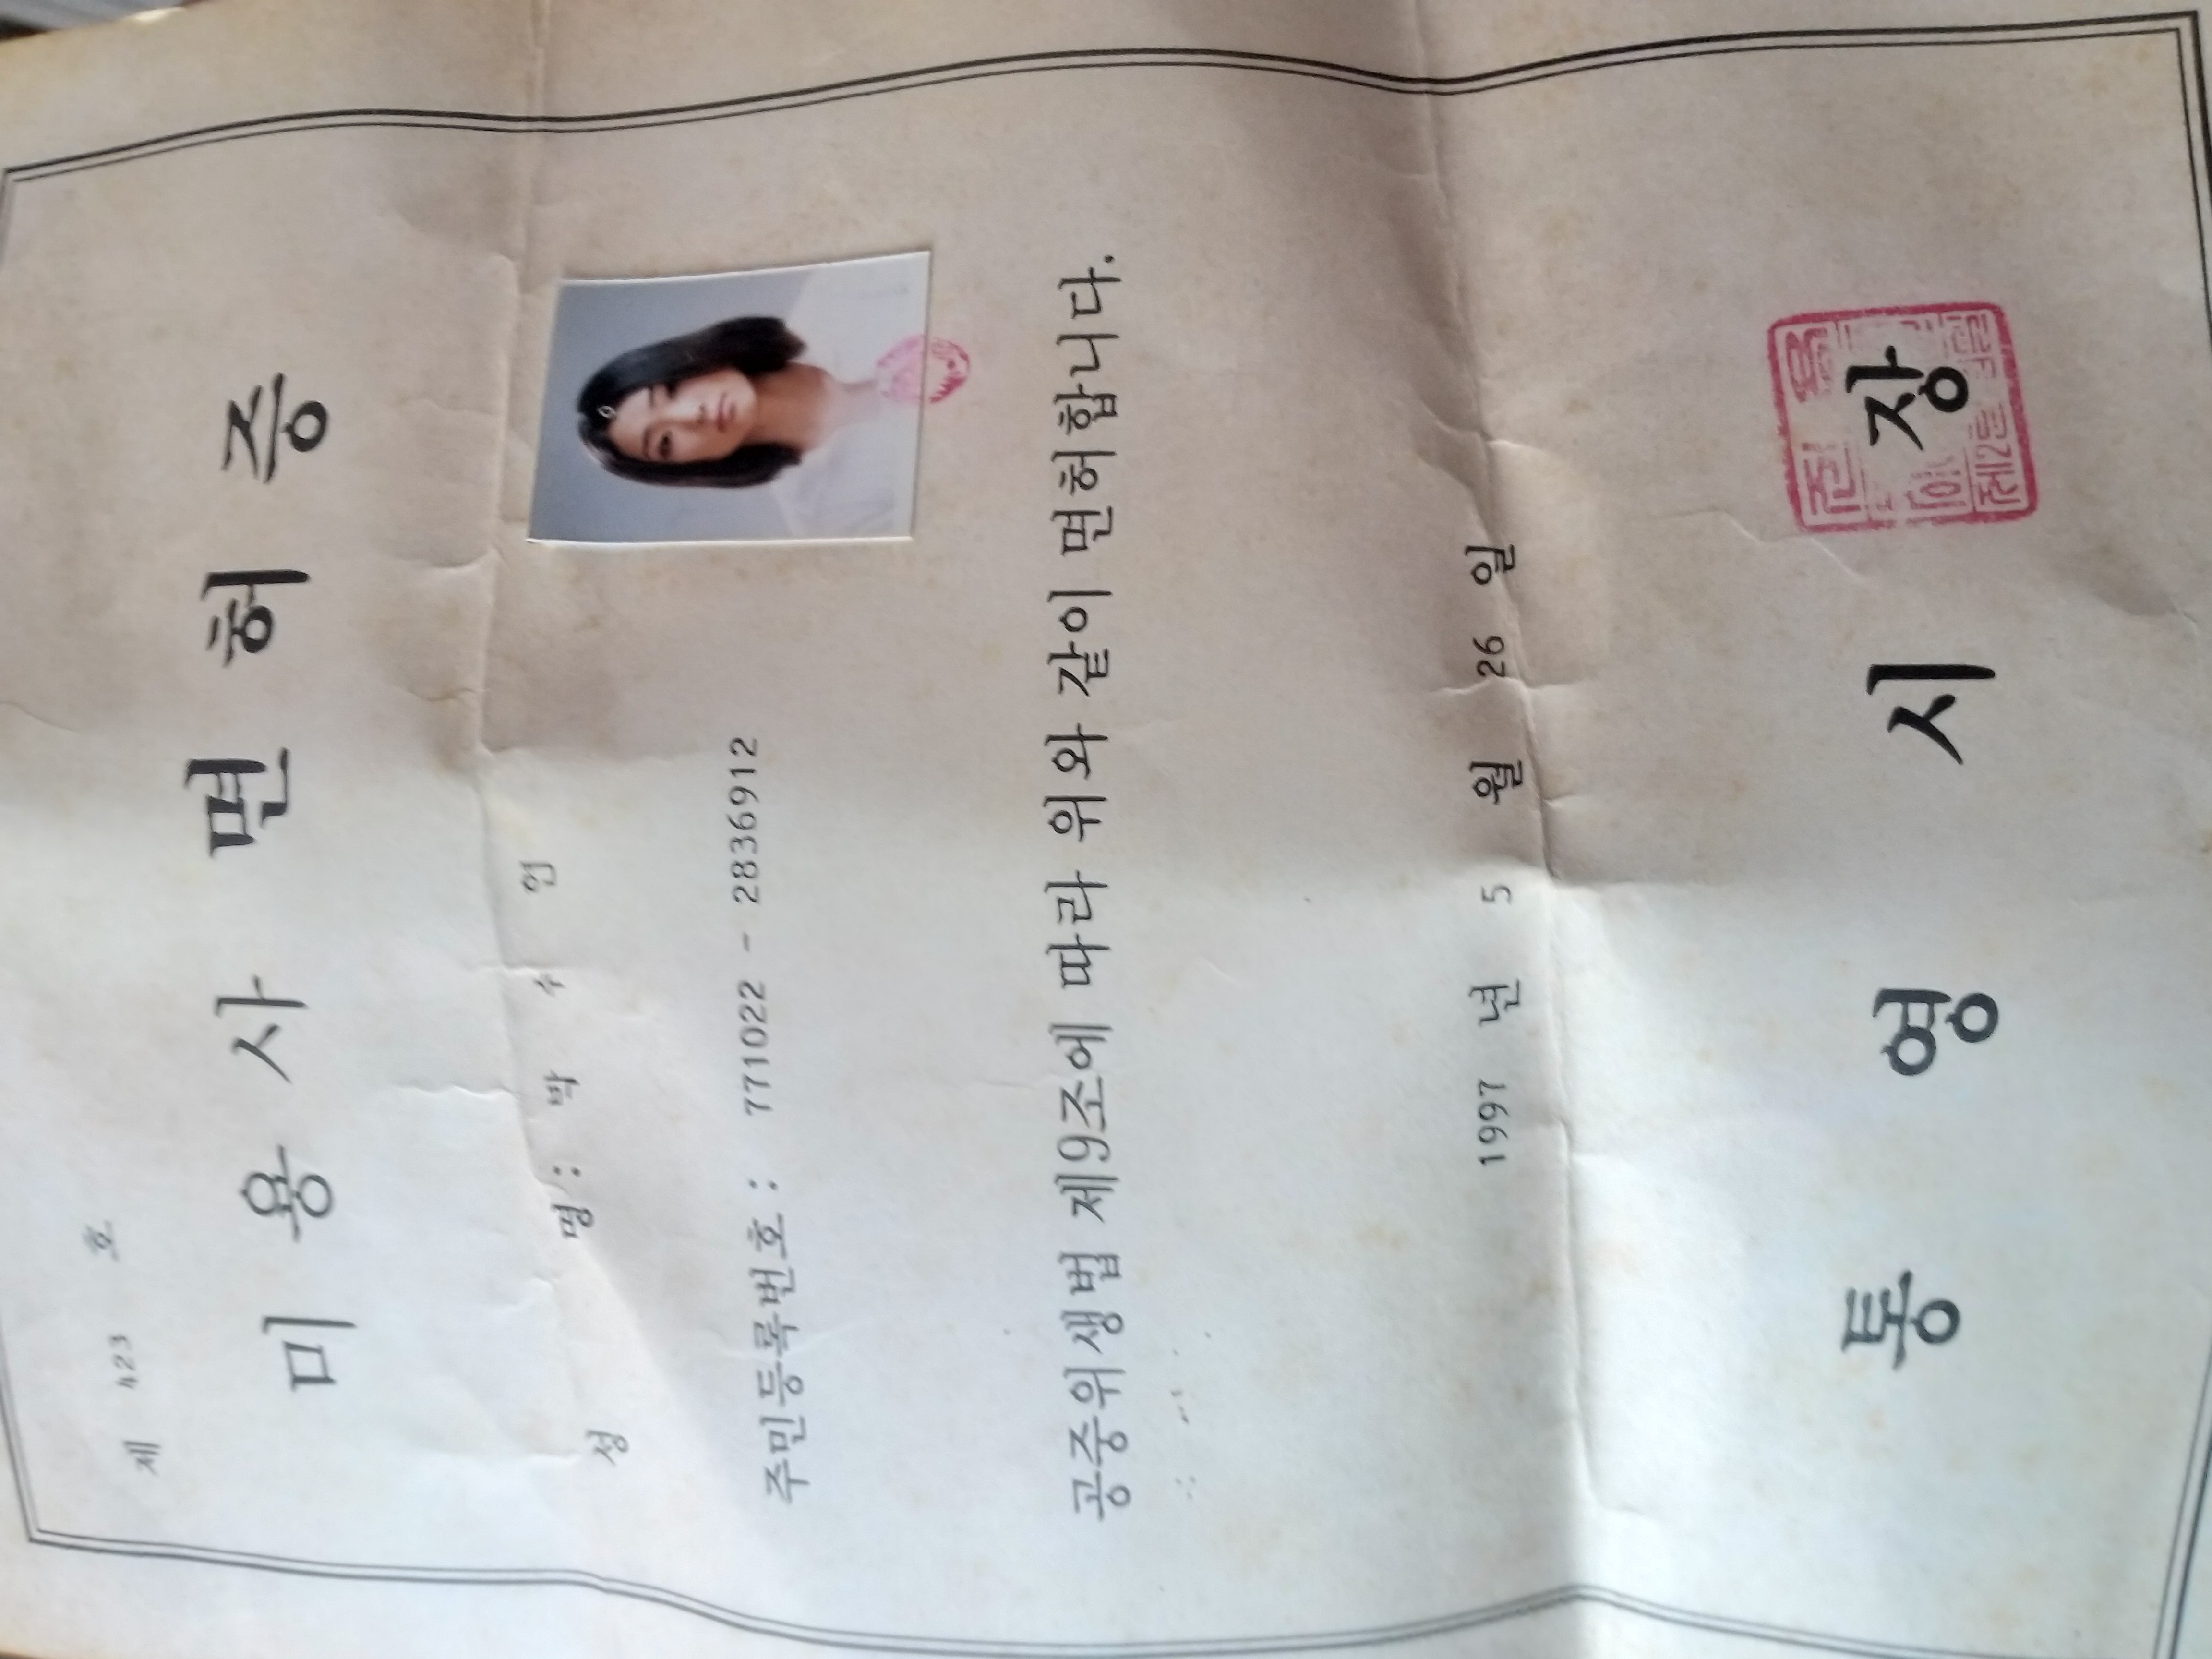 제 423 호
미 용 사 면 허 증
성 명 : 박 수 연
주민등록번호 : 771022 - 2836912
공중위생법 제9조에 따라 위와 같이 면허합니다.
1997 년 5 월 26 일
통 영 시 장